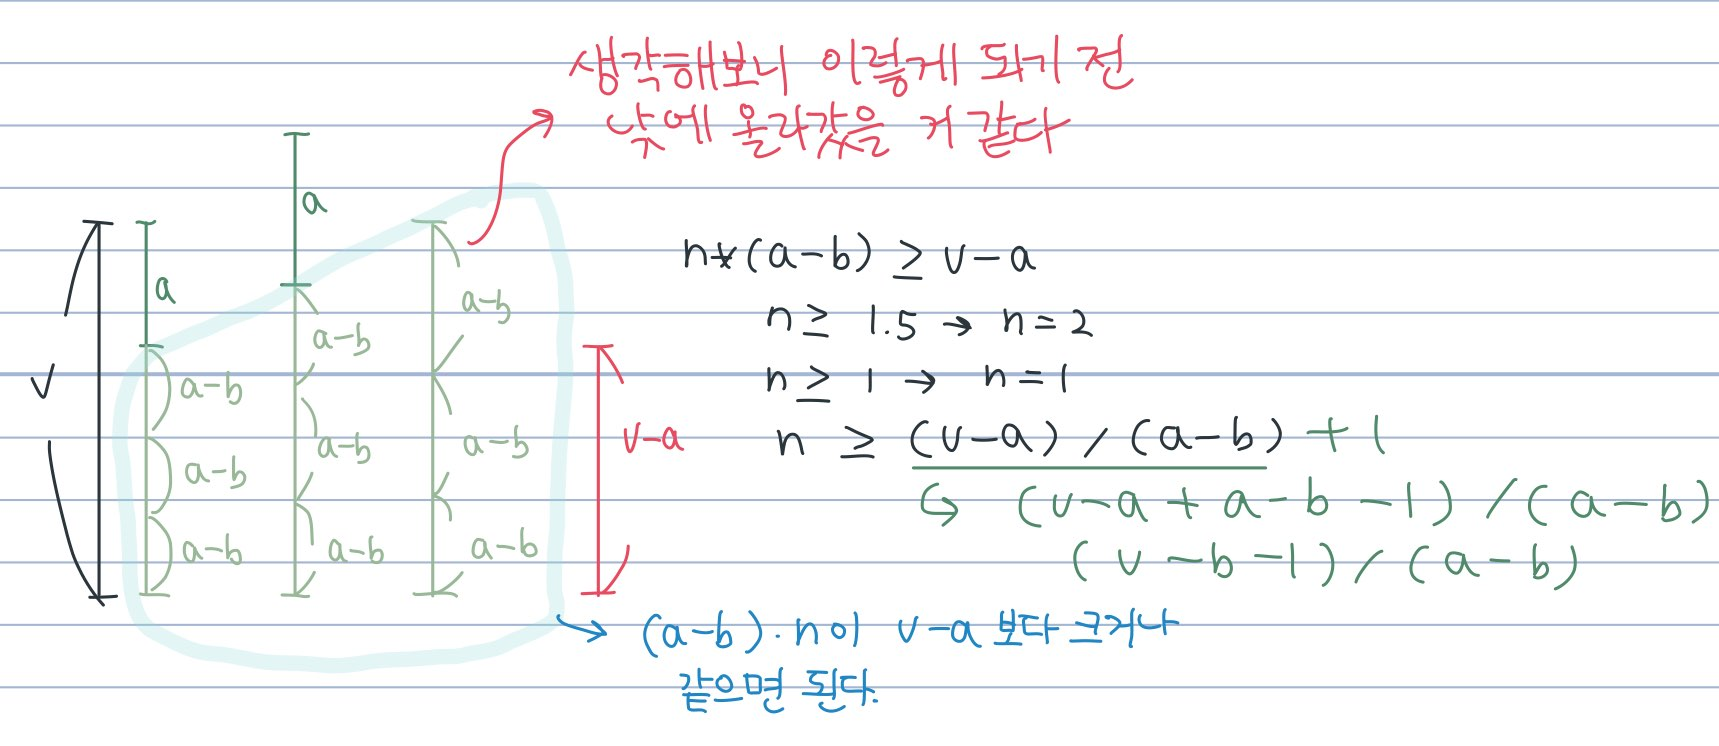 생각해보니 이렇게 되기 전
낮에 올라갔을 거 같다
a
a
v
a-b
a-b
a-b
a-b
a-b
a-b
a-b
a-b
a-b
v-a
n*(a-b) ≥ v-a
n ≥ 1.5 → n=2
n ≥ 1 → n=1
n ≥ (v-a) / (a-b) +1
↪ (v-a+a-b-1) / (a-b)
(v-b-1) / (a-b)
→ (a-b)·n이 v-a 보다 크거나
같으면 된다.